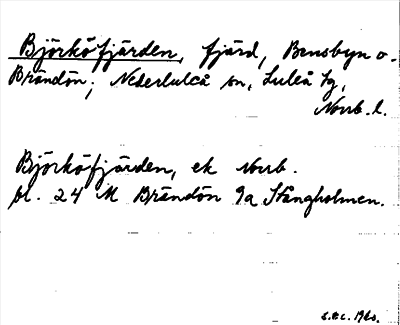 Björköfjärden, fjärd, Bensbyn o.
Brändön; Nederluleå sn, Luleå tg,
Norrb. l.
Björköfjärden, ek Norrb.
bl. 24 M Brändön 9a Stångholmen.
1960.